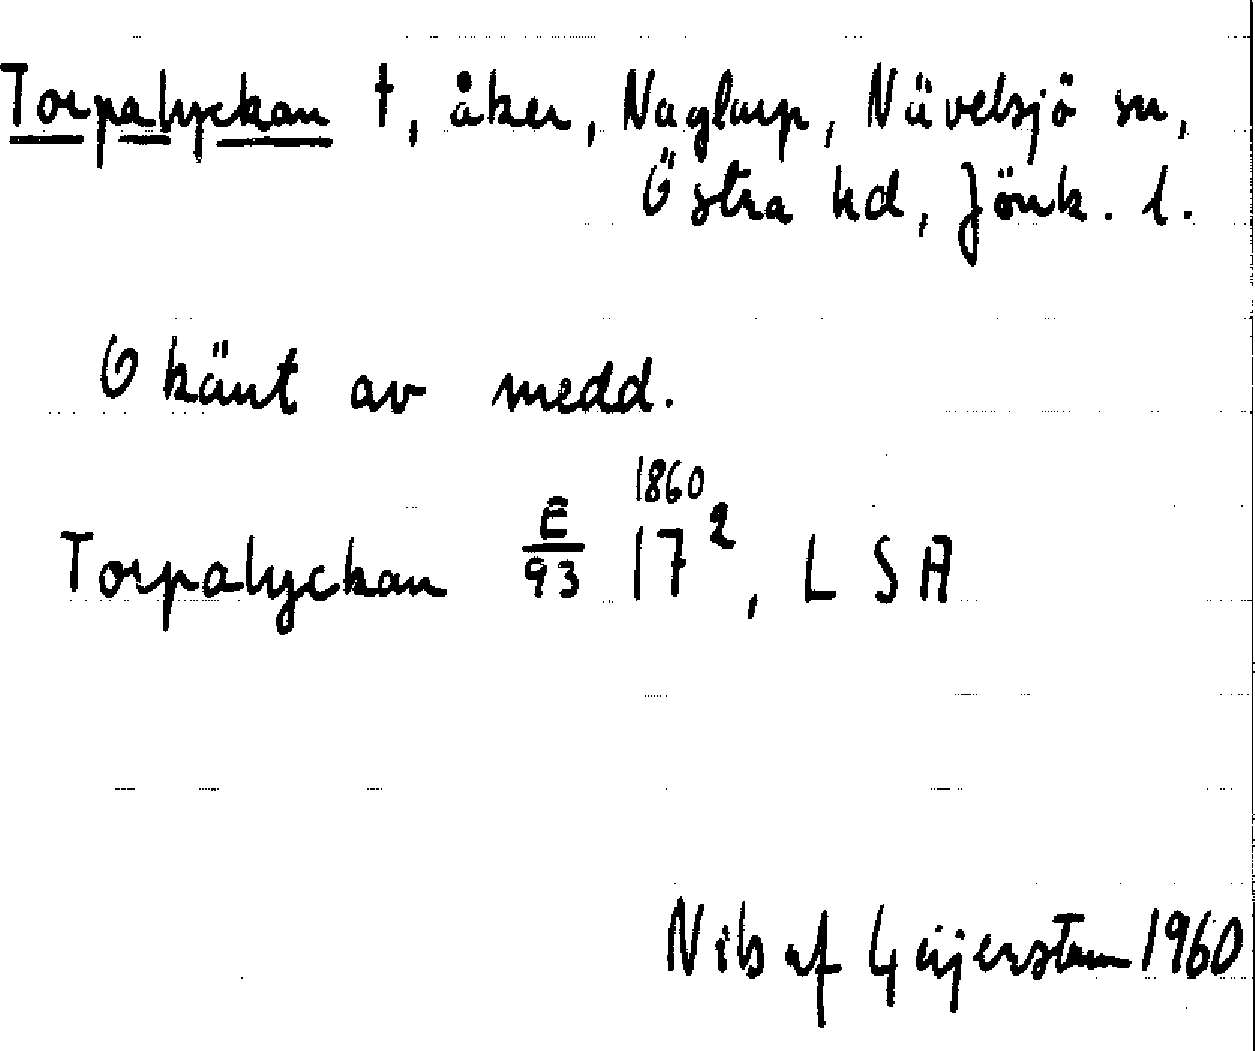 Torpalyckan †, åker, Naglarp, Nävelsjö sn,
Östra hd, Jönk. l.
Okänt av medd.
1860
Torpalyckan E/93 17², LSA
Nils af Geijerstam 1960